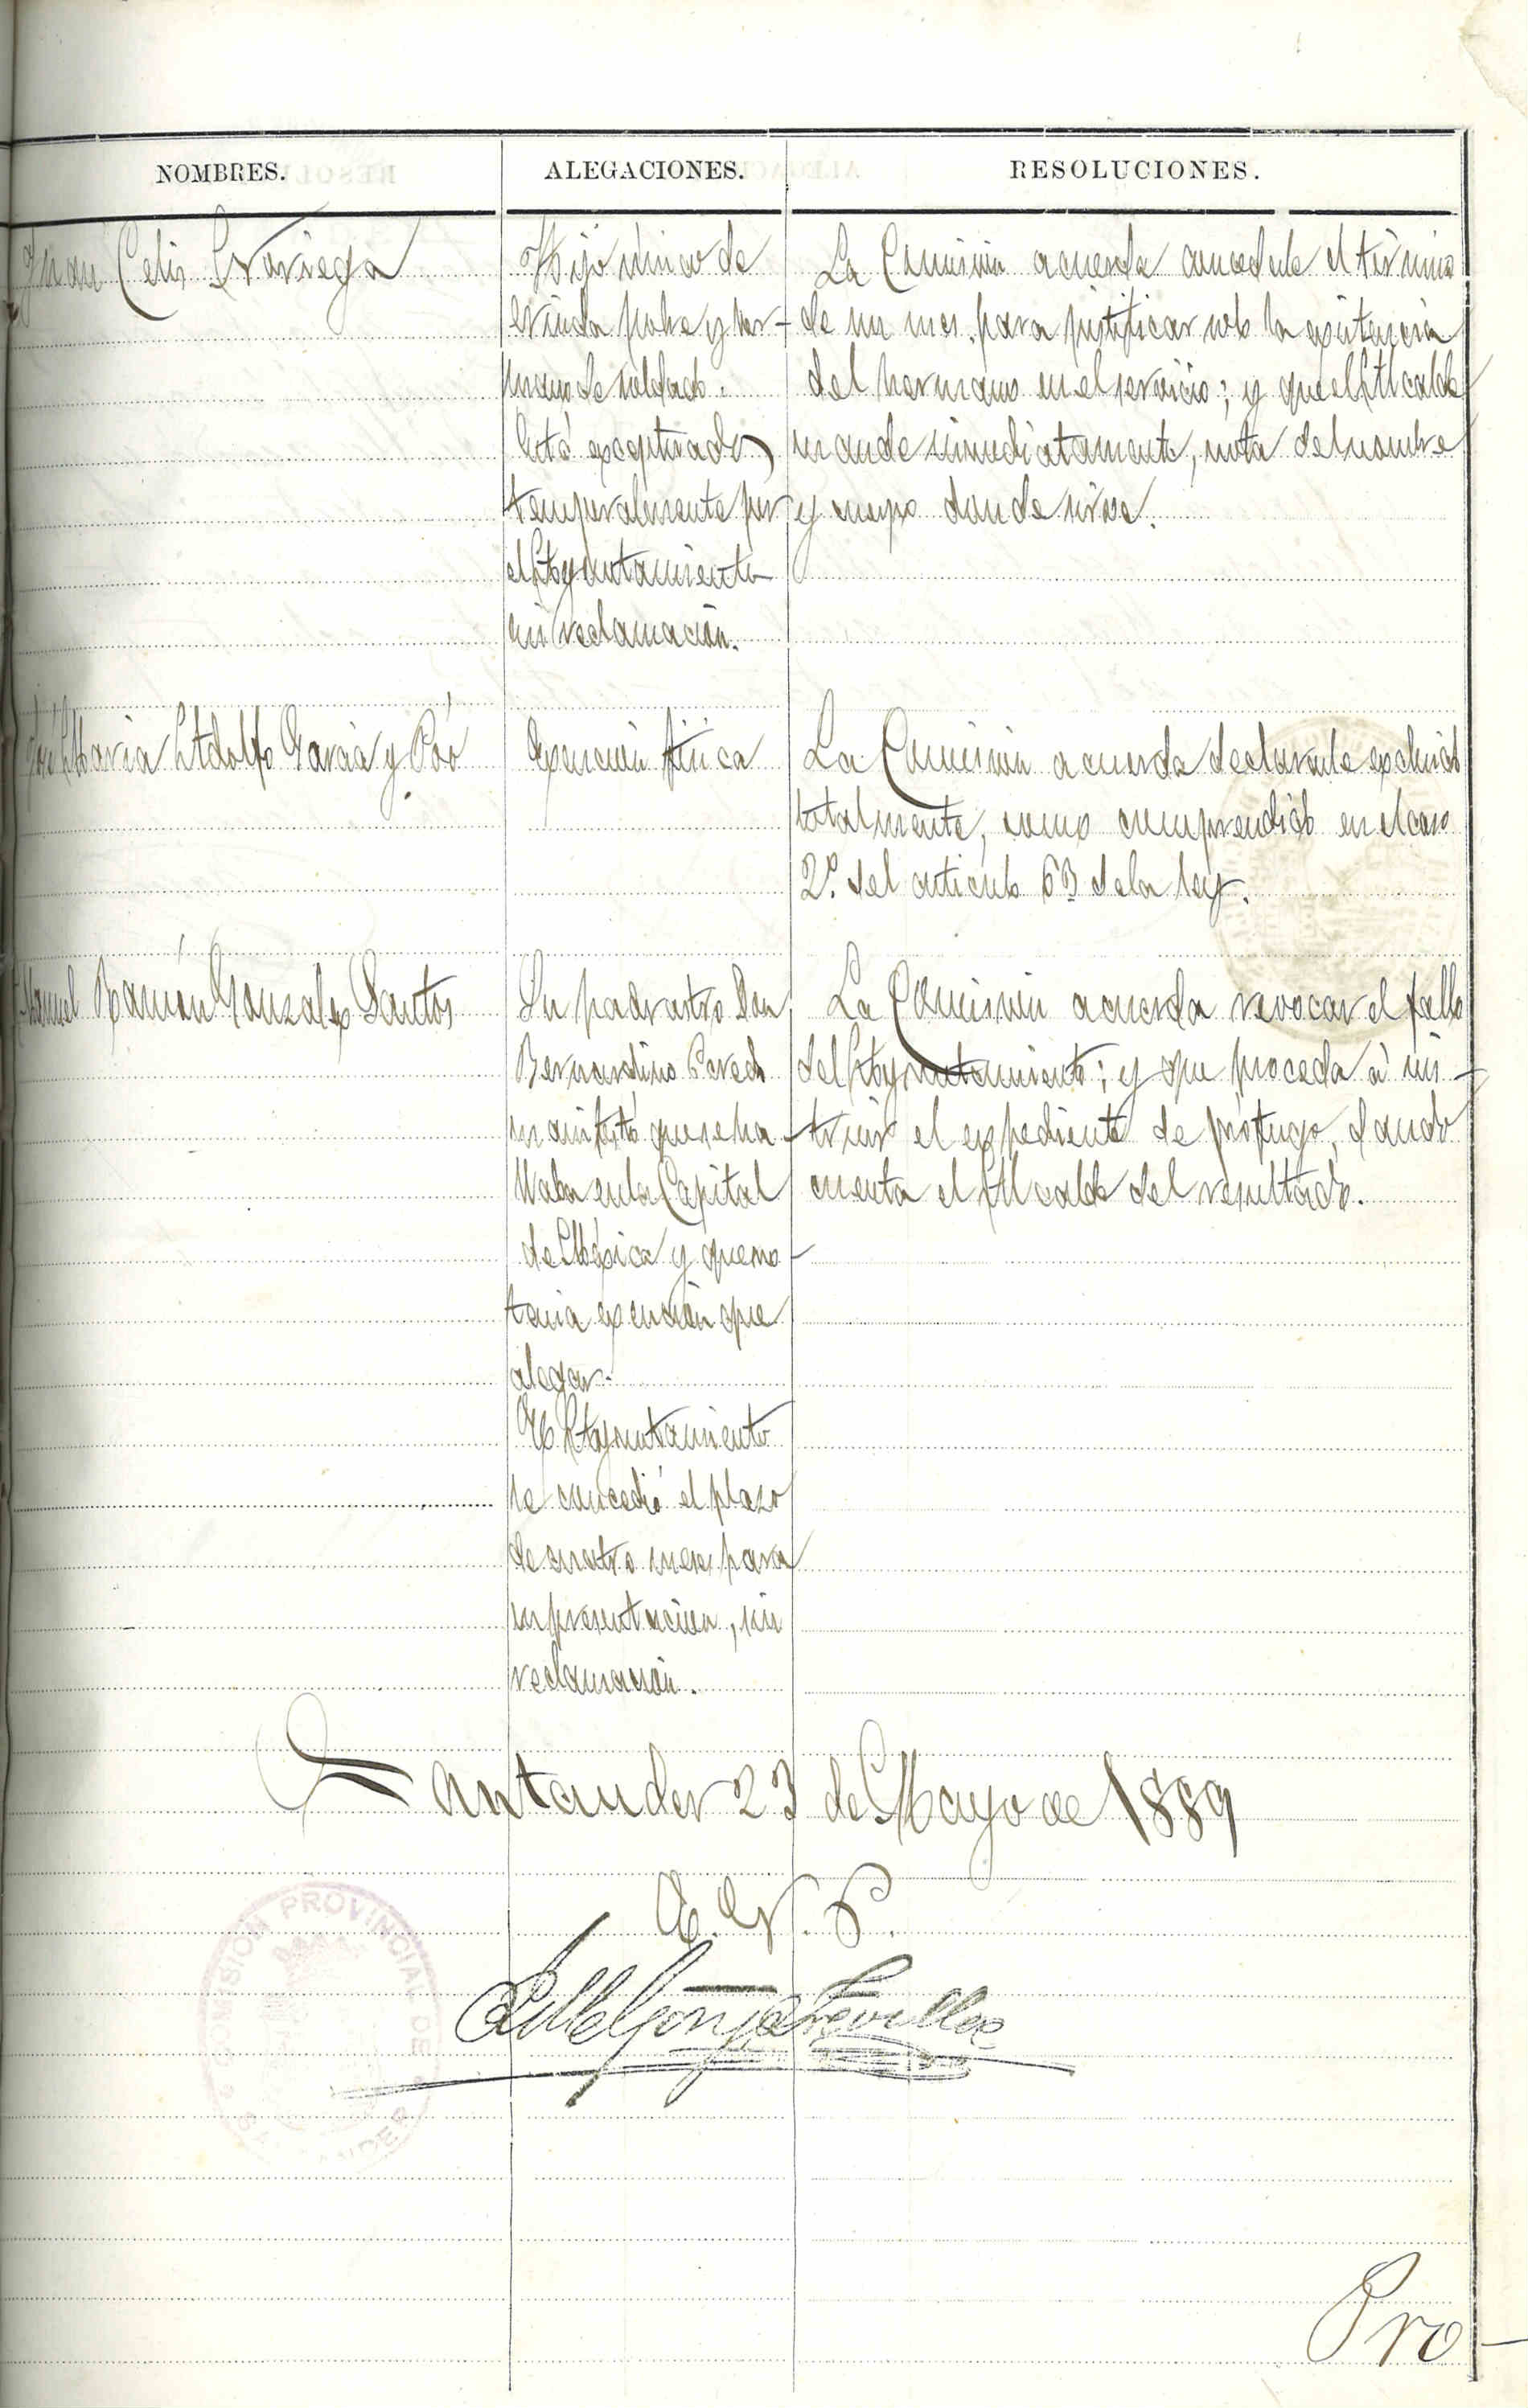 NOMBRES.
ALEGACIONES.
RESOLUCIONES.
Juan Celis Noriega
Hijo único de
viuda pobre y her-
mano de soldado.
Está exceptuado
temporalmente por
el Ayuntamiento
sin reclamación.
La Comisión acuerda concederle el término
de un mes para justificar solo la existencia
del hermano en el servicio; y que el Alcalde
mande inmediatamente, nota del nombre
y cuerpo donde sirve.
José Maria Adolfo Garcia y Póo
Exención física
La Comisión acuerda declararle excluido
totalmente, como comprendido en el caso
2º. del articulo 63 de la ley.
Manuel Ramón Gonzalez Santos
Su padrastro Don
Bernardino Pereda
manifestó que se ha-
llaba en la Capital
de Mégico y que no
tenia exención que
alegar.
El Ayuntamiento
le concedió el plazo
de cuatro meses para
su presentacion, sin
reclamación.
La Comisión acuerda revocar el fallo
del Ayuntamiento; y que proceda á ins-
truir el expediente de prófugo, dando
cuenta el Alcalde del resultado.
Santander 23 de Mayo de 1889
El V. P.
COMISION PROVINCIAL DE SANTANDER
Pro-